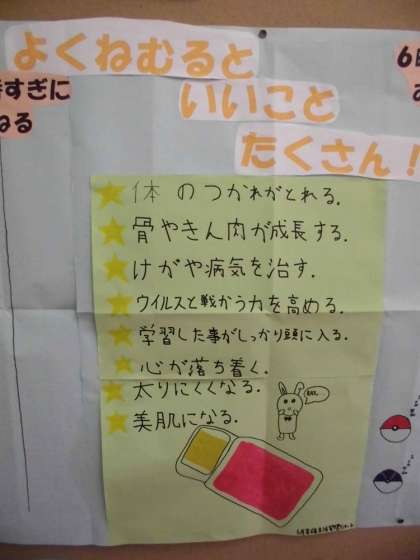 よくねむると
いいこと
たくさん!
すぎに
ねる
6
体のつかれがとれる.
骨やきん肉が成長する.
けがや病気を治す.
ウイルスと戦かう力を高める.
学習した事がしっかり頭に入る.
心が落ち着く.
太りにくくなる.
美肌になる.